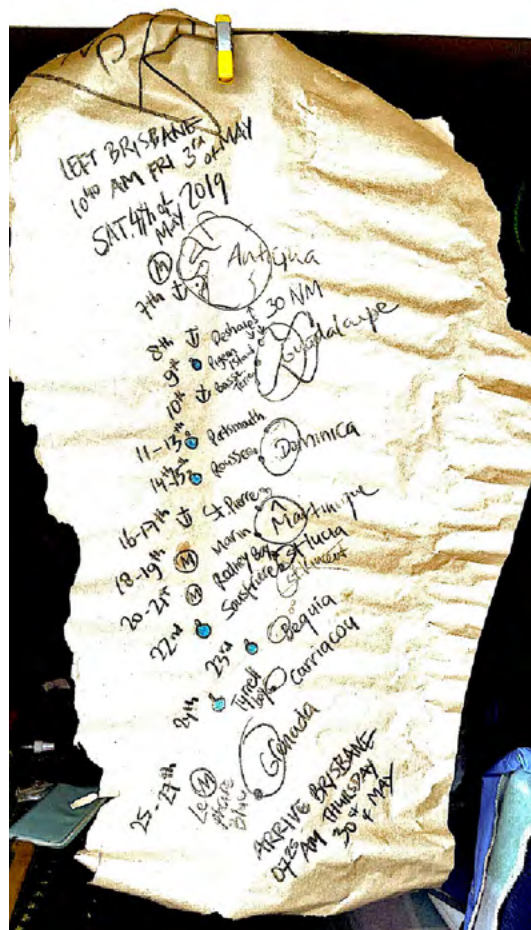 LEFT BRISBANE
10⁴⁰ AM FRI 3rd of MAY
SAT. 4th of MAY 2019
M Antigua
7th
8th Deshaies 30 NM
9th Pigeon Island Guadaloupe
10th Basse Terre
11-13th Portsmouth
14-15th Rousseau Dominica
16-17th St. Pierre
18-19th M Marin Martinique
20-21st M Rodney Bay St Lucia
22nd Soustriere St Vincent
23rd Bequia
24th Tyrrell bay Carriacou
25-27th M Grenada
Le phare Bleu
ARRIVE BRISBANE
07²⁵ AM THURSDAY
30th MAY